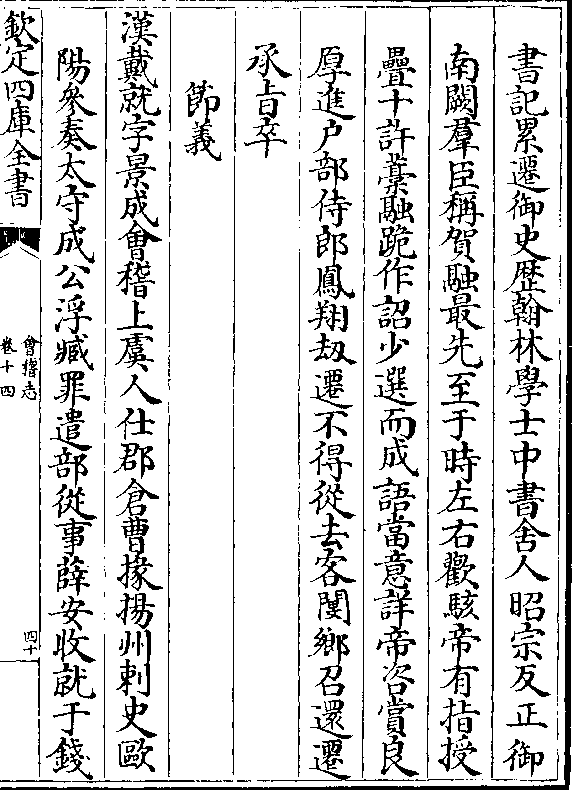 書記累遷御史歴翰林學士中書舍人昭宗反正御
南闕羣臣稱賀融最先至于時左右歡駭帝有指授
疊十許藁融跪作詔少選而成語當意詳帝咨賞良
厚進户部侍郎鳳翔刼遷不得從去客閿鄉召還遷
承旨卒
節義
漢戴就字景成會稽上虞人仕郡倉曹掾揚州刺史歐
陽叅奏太守成公浮臧罪遣部從事薛安收就于錢
欽定四庫全書
會稽志
卷十四
四十